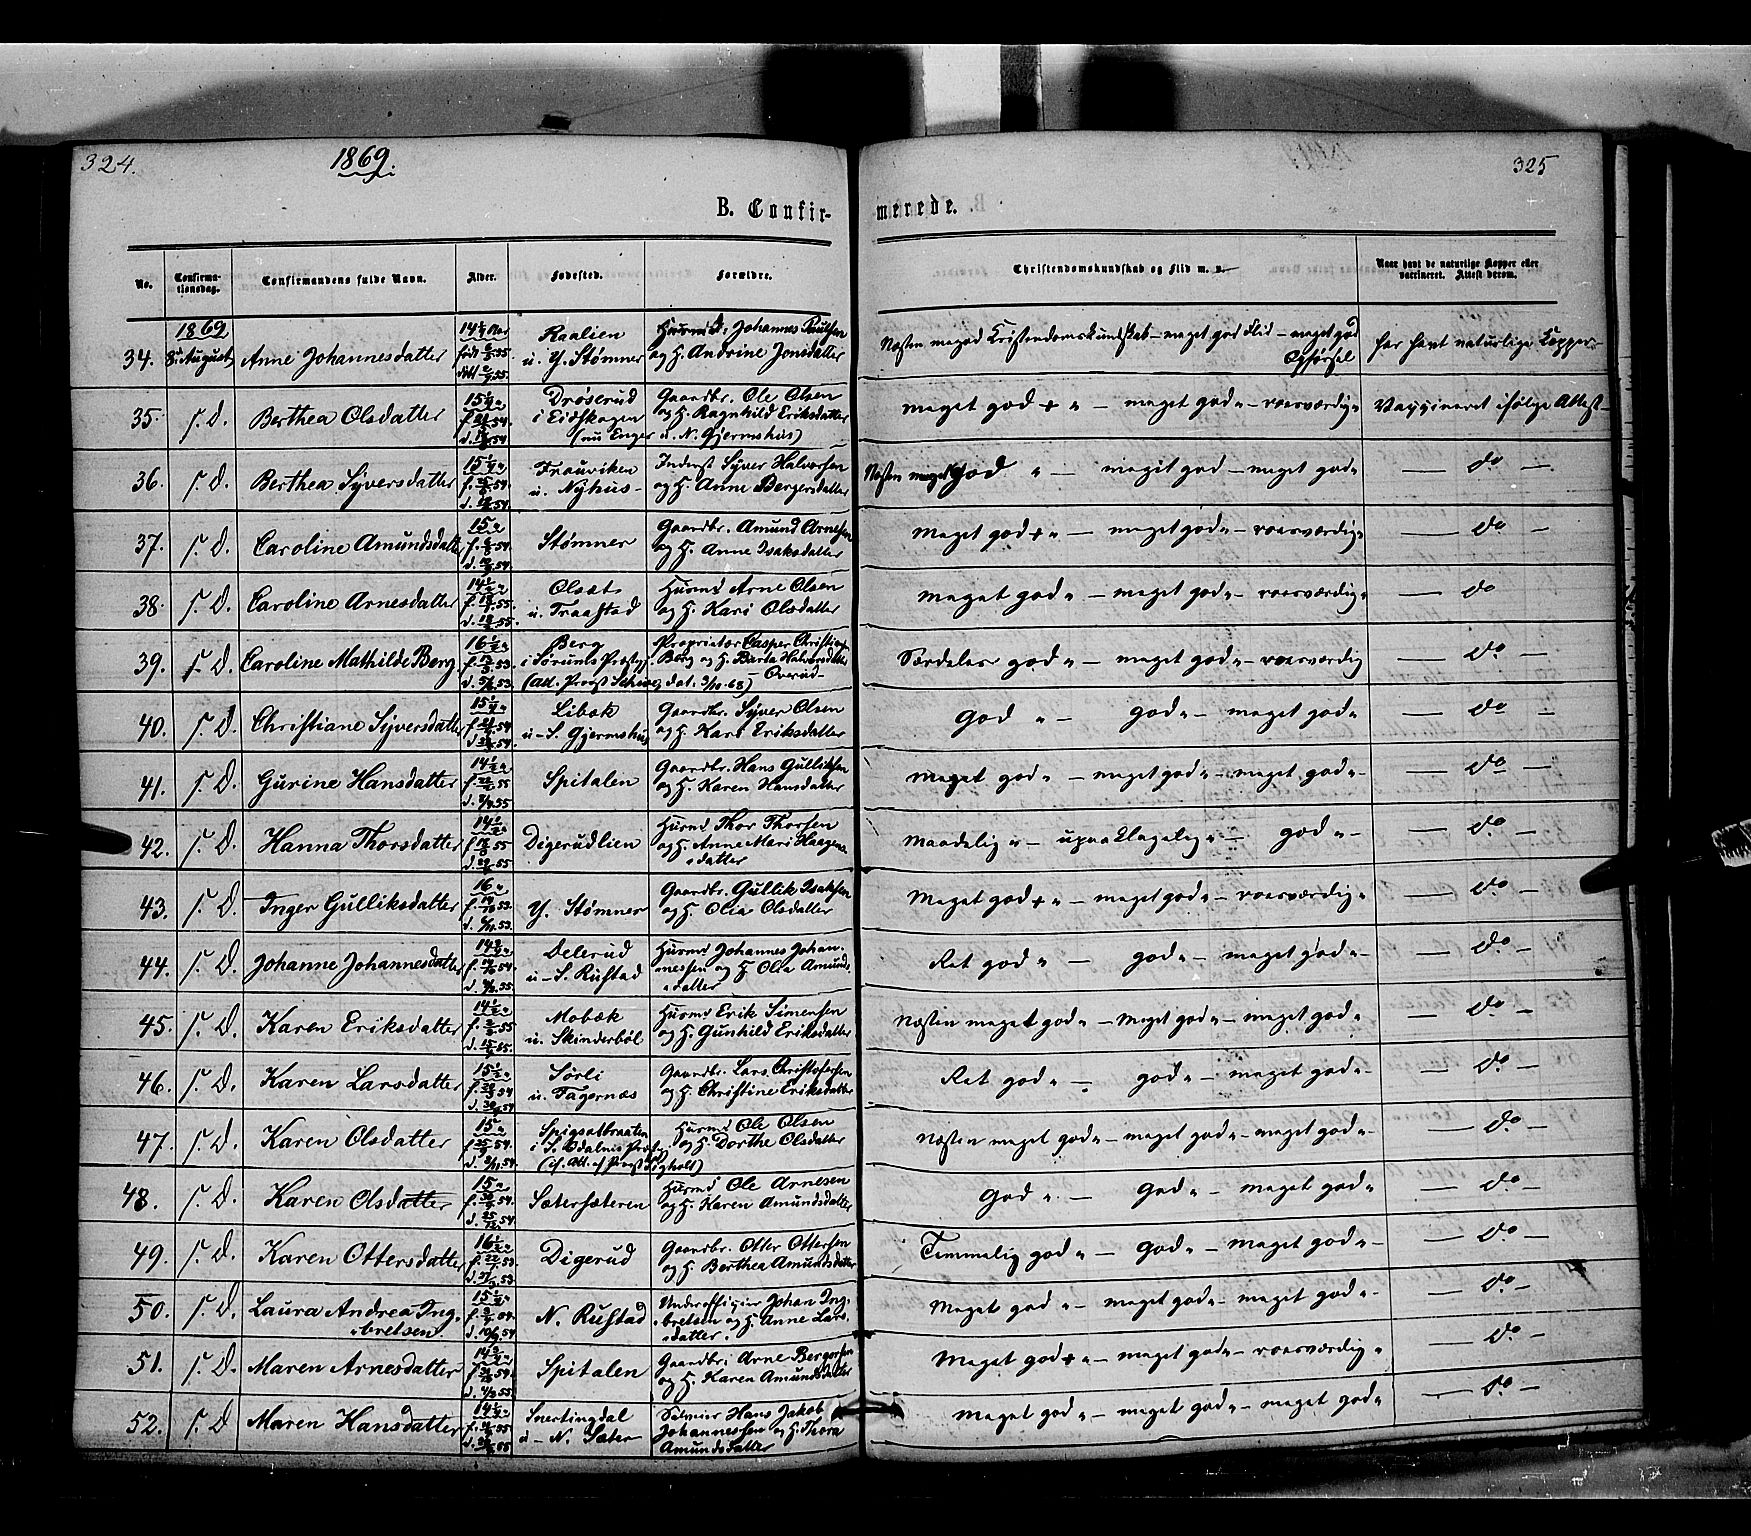 324.
1869.
325
B. Confir-
merede.
No.
Confirma-
tionsdag.
Confirmandens fulde Navn.
Alder.
Fødested.
Forældre.
Christendomskundskab og Flid m. v.
Naar havt de naturlige Kopper eller
vaccineret. Attest derom.
1869
34. 8de August Anne Johannesdatter Raalien
u. Y. Stømner
og H. Andrine Jonsdatter
Næsten meget Kristendomskundskab - meget god Flid - meget god
Opførsel
har havt naturlige Kopper
35. s. D. Berthea Olsdatter
Drøserud
i Eidskogen
(nu Enger u. N. Gjermshus)
Gaardbr. Ole Olsen
og H. Ragnhild Eriksdatter
meget god + " - meget god " - roesværdig " Vaccineret ifølge Attest
36. s. D. Berthea Syversdatter
u. Nyhus
Inderst Syver Halvorsen
og H. Anne Bergersdatter
Næsten meget god " - meget god - meget god " — do —
37. s. D. Caroline Amundsdatter 15 " Stømner
Gaardbr. Amund Arnesen
og H. Anne Isaksdatter
meget god + " - meget god " - roesværdig " — do —
38. s. D. Caroline Arnesdatter
Olsæt
u. Traastad
Husmd Arne Olsen
og H. Kari Olsdatter
meget god " - meget god " - roesværdig " — do
39. s. D. Caroline Mathilde Berg
Berg
i Sørums Præstg.
Proprietær Casper Christian
Berg og H. Berta Halvorsdatter
- Overud -
Særdeles god " - meget god " - roesværdig — do —
40. s. D. Christiane Syversdatter
Libæk
u. S. Gjermshus
Gaardbr. Syver Olsen
og H. Kari Eriksdatter
God " - god " - meget god " — do —
41. s. D. Gurine Hansdatter Spitalen
Gaardbr. Hans Gulliksen
og H. Karen Hansdatter
Meget god " - meget god " - meget god " - — do —
42. s. D. Hanna Thorsdatter Digerudlien
Husmd Thor Thorsen
og H. Anne Mari Haagens-
datter
Maadelig " - upaaklagelig " - god " - — do —
43. s. D. Inger Gulliksdatter 16 " Y. Stømner
Gaardbr. Gullik Isaksen
og H. Olia Olsdatter
Meget god + " - meget god " - roesværdig " — do —
44. s. D. Johanne Johannesdatter
Delerud
u. S. Rustad
Husmd Johannes Johan-
nessen og H. Olia Amunds-
datter
Ret god " - god " - meget god " - — do —
45. s. D. Karen Eriksdatter
Mobæk
u. Skinderbøl
Husmd Erik Simensen
og H. Gunhild Eriksdatter
Næsten meget god " - meget god " - meget god " — do —
46. s. D. Karen Larsdatter
Sørli
u. Fagernæs
Gaardbr. Lars Christofersen
og H. Christine Eriksdatter
Ret god " - god " - meget god " — do —
47. s. D. Karen Olsdatter 15 "
Husmd Ole Olsen
og H. Dorthe Olsdatter
Næsten meget god " - meget god " - meget god " - — do —
48. s. D. Karen Olsdatter 15 " Sætersæteren
Husmd Ole Arnesen
og H. Karen Amundsdatter
God " - god " - meget god " — do —
49. s. D. Karen Ottersdatter Digerud
Gaardbr. Otter Ottersen
og H. Berthea Amundsdatter
Temmelig god " - god " - meget god " - — do —
50. s. D. Laura Andrea Ing-
bretsen
N. Rustad
Underofficier Johan Ing-
bretsen og H. Anne Lars-
datter.
Meget god " - meget god " - meget god " — do —
51. s. D. Maren Arnesdatter Spitalen
Gaardbr. Arne Bergersen
og H. Karen Amundsdatter
Meget god + " - meget god " - roesværdig " — do —
52. s. D. Maren Hansdatter
Snertingdal
u. N. Sæter
Selveier Hans Jakob
Johannessen og H. Thora
Amundsdatter
Meget god " - meget god " - meget god " — do —